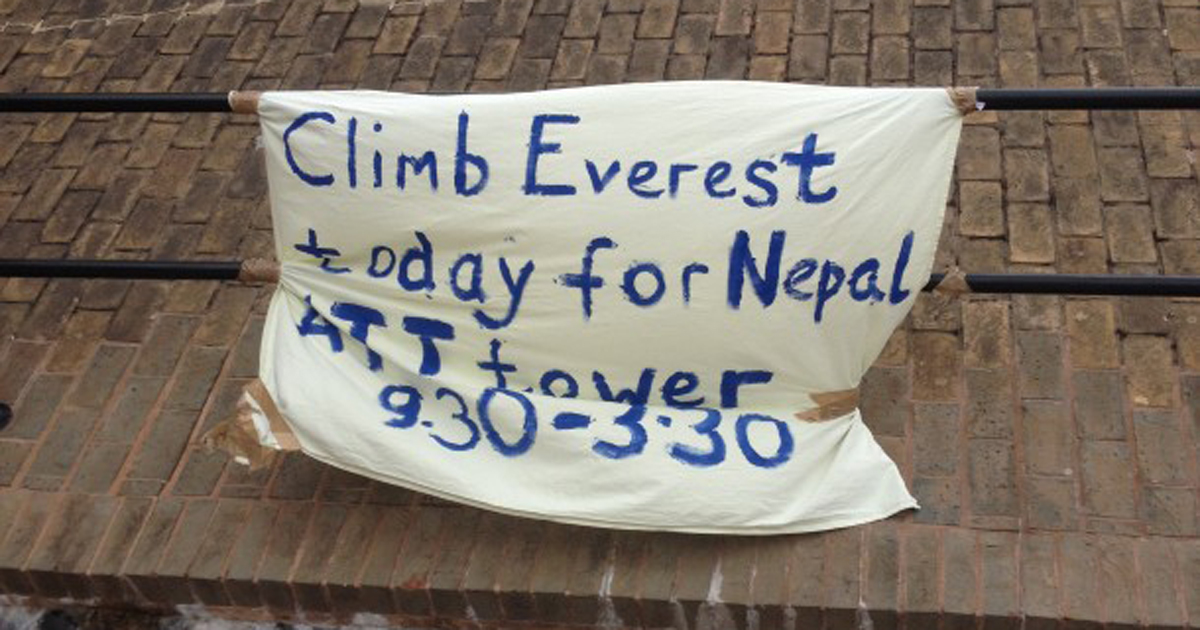 Climb Everest
today for Nepal
ATT tower
9.30-3.30